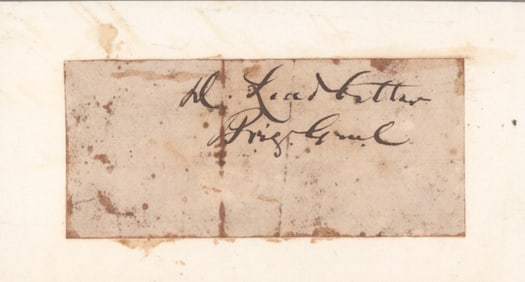 D. Leadbetter
Brig. Genl